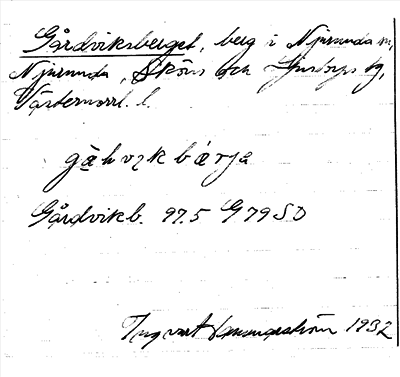 Gårdviksberget, berg i Njurunda sn,
Njurunda, Sköns och Ljustorps tg,
Västernorrl. l.
gàhvɩkbǽrjə
Gårdvikb. 97.5 G 79 SO
Ingvart 1932